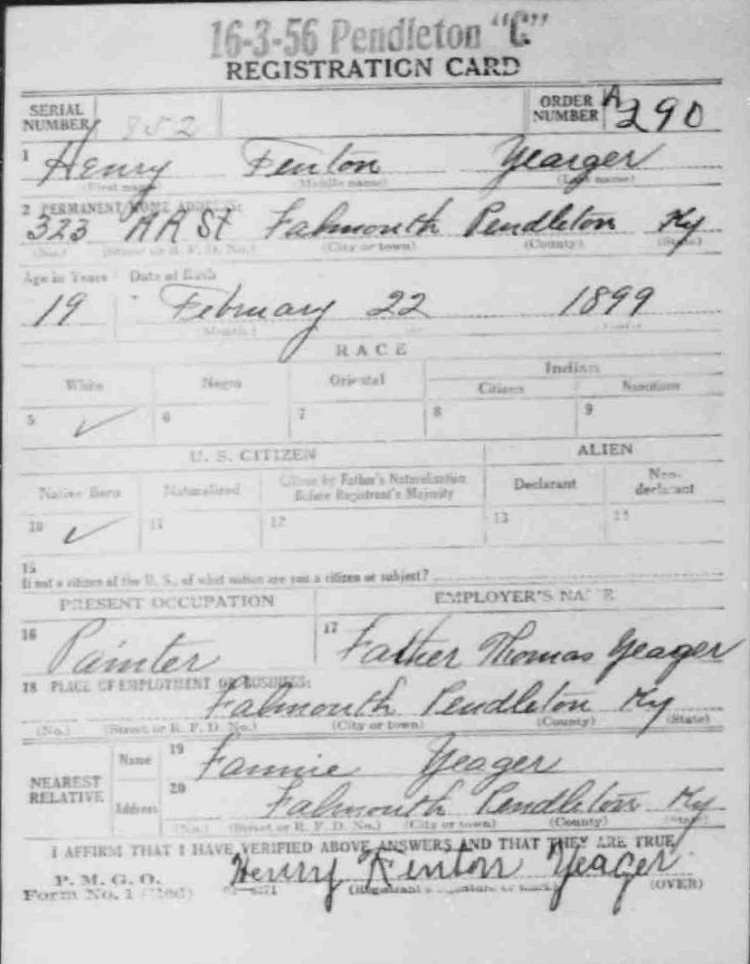 16-3-56 Pendleton "C"
REGISTRATION CARD
SERIAL NUMBER 852 ORDER NUMBER A 290
1 Henry Fenton Yearger
(First name) (Middle name) (Last name)
2 PERMANENT HOME ADDRESS:
323 RR St Falmouth Pendleton Ky
(No.) (Street or R. F. D. No.) (City or town) (County) (State)
Age in Years Date of Birth
19 February 22 1899
(Month)
RACE
White Negro Oriental Indian
Citizen Noncitizen
5 ✓ 6 7 8 9
U. S. CITIZEN ALIEN
Native Born Naturalized Citizen by Father's Naturalization Before Registrant's Majority Declarant Non-declarant
10 ✓ 11 12 13 14
15
If not a citizen of the U. S., of what nation are you a citizen or subject?
PRESENT OCCUPATION EMPLOYER'S NAME
16 Painter 17 Father Thomas Yeager
18 PLACE OF EMPLOYMENT OR BUSINESS:
Falmouth Pendleton Ky
(No.) (Street or R. F. D. No.) (City or town) (County) (State)
NEAREST RELATIVE
Name 19 Fannie Yeager
Address 20 Falmouth Pendleton Ky
(No.) (Street or R. F. D. No.) (City or town) (County) (State)
I AFFIRM THAT I HAVE VERIFIED ABOVE ANSWERS AND THAT THEY ARE TRUE
Henry Fenton Yeager
P. M. G. O.
Form No. 1 (Red) (Registrant's signature or mark) (OVER)